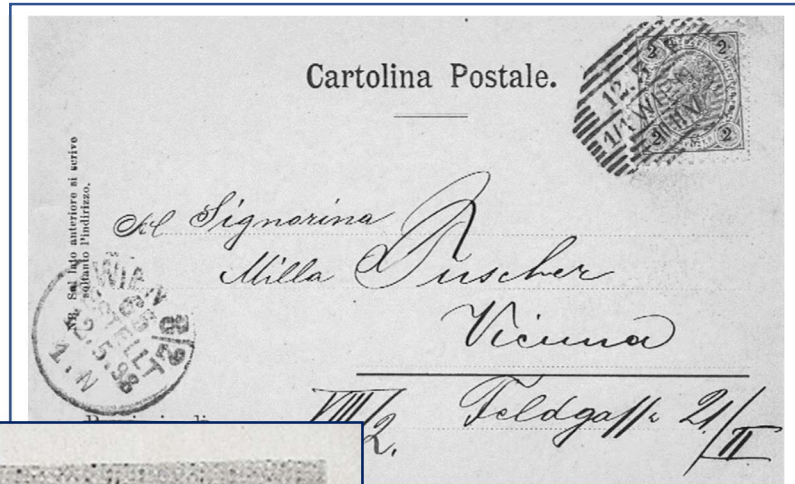 Cartolina Postale.
2 2
12. 5
1/1 WIEN
2 2
NB. Sul lato anteriore si scrive
soltanto l'indirizzo.
Signorina
Milla Puscher
Vienna
VIII/2. Feldgasse 21/II
WIEN
BESTELLT
2.5.98
1. N